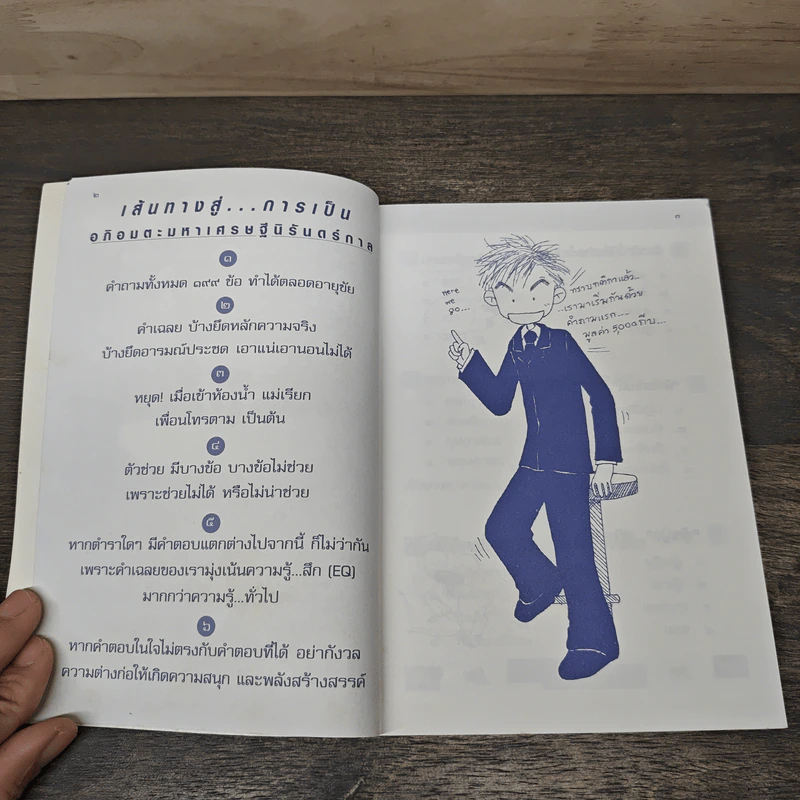 ๒
เส้นทางสู่...การเป็น
อภิอมตะมหาเศรษฐีนิรันดร์กาล
๑
คำถามทั้งหมด ๑๙๙ ข้อ ทำได้ตลอดอายุขัย
๒
คำเฉลย บ้างยึดหลักความจริง
บ้างยึดอารมณ์ประชด เอาแน่เอานอนไม่ได้
๓
หยุด! เมื่อเข้าห้องน้ำ แม่เรียก
เพื่อนโทรตาม เป็นต้น
๔
ตัวช่วย มีบางข้อ บางข้อไม่ช่วย
เพราะช่วยไม่ได้ หรือไม่น่าช่วย
๕
หากตำราใดๆ มีคำตอบแตกต่างไปจากนี้ ก็ไม่ว่ากัน
เพราะคำเฉลยของเรามุ่งเน้นความรู้...สึก (EQ)
มากกว่าความรู้...ทั่วไป
๖
หากคำตอบในใจไม่ตรงกับคำตอบที่ได้ อย่ากังวล
ความต่างก่อให้เกิดความสนุก และพลังสร้างสรรค์
๓
Here
we
go...
ทราบกติกาแล้ว...
..เรามาเริ่มกันด้วย
คำถามแรก...
มูลค่า 5,000 กีบ...